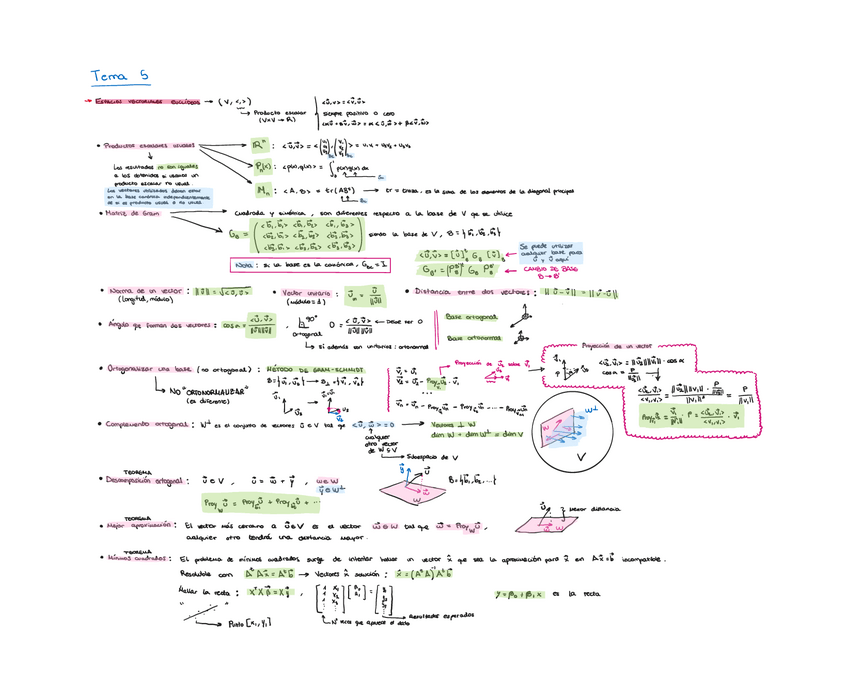 Tema 5
→ Espacios vectoriales euclídeos → (V, <,>)
Producto escalar
(V×V → R)
<u⃗,v⃗> = <v⃗,u⃗>
siempre positivo o cero
<αu⃗ + βv⃗, w⃗> = α<u⃗,w⃗> + β<v⃗,w⃗>
• Productos escalares usuales
Los resultados no son iguales
a los obtenidos si usamos un
producto escalar no usual.
Los vectores utilizados deben estar
en la base canónica independientemente
de si es producto usual o no usual
ℝⁿ : <u⃗,v⃗> =
Pₙ(x) : <p(x),q(x)> = ∫ p(x)q(x) dx
Mₙ : <A, B> = tr(ABᵗ) → tr = traza, es la suma de los elementos de la diagonal principal
• Matriz de Gram
Cuadrada y simétrica, son diferentes respecto a la base de V que se utilice
G_B = ( <b⃗₁,b⃗₁> <b⃗₁,b⃗₂> <b⃗₁,b⃗₃>
<b⃗₂,b⃗₁> <b⃗₂,b⃗₂> <b⃗₂,b⃗₃>
<b⃗₃,b⃗₁> <b⃗₃,b⃗₂> <b⃗₃,b⃗₃> ) siendo la base de V, B = {b⃗₁, b⃗₂, b⃗₃}
Nota: si la base es la canónica, G_Bc = I
<u⃗,v⃗> = [u⃗]ᵗ_B G_B [v⃗]_B
Se puede utilizar
cualquier base para
u⃗ y v⃗ aquí
CAMBIO DE BASE
B → B'
• Norma de un vector : ||u⃗|| = √<u⃗,u⃗>
(longitud, módulo)
• Vector unitario :
(módulo = 1)
• Distancia entre dos vectores : ||u⃗ - v⃗|| = ||v⃗ - u⃗||
• Ángulo que forman dos vectores : cos α = <u⃗,v⃗> / ||u⃗||||v⃗|| ,
90°
ortogonal
0 = <u⃗,v⃗> / ||u⃗||||v⃗|| ← Debe ser 0
Si además son unitarios: ortonormal
Base ortogonal
Base ortonormal
• Ortogonalizar una base (no ortogonal) : MÉTODO DE GRAM-SCHMIDT
NO "ORTONORMALIZAR"
(es diferente)
Proyección de un vector
• Complemento ortogonal : W⊥ es el conjunto de vectores u⃗ ∈ V tal que <u⃗, v⃗> = 0
cualquier
otro vector
de W ⊆ V
Subespacio de V
Vectores ⊥ W
dim W + dim W⊥ = dim V
W
W⊥
V
TEOREMA
• Descomposición ortogonal : u⃗ ∈ V , u⃗ = w⃗ + y⃗ , w⃗ ∈ W
y⃗ ∈ W⊥
B = {b⃗₁, b⃗₂, ...}
TEOREMA
• Mejor aproximación : El vector más cercano a u⃗ ∈ V es el vector w⃗ ∈ W tal que w⃗ = Proy_W u⃗ ,
cualquier otro tendrá una distancia mayor.
Menor distancia
TEOREMA
• Mínimos cuadrados : El problema de mínimos cuadrados surge de intentar hallar un vector x̂ que sea la aproximación para x⃗ en Ax⃗ = b⃗ incompatible.
Resoluble con AᵗAx̂ = Aᵗb⃗ → Vectores x̂ solución : x̂ = (AᵗA)⁻¹Aᵗb⃗
Hallar la recta : XᵗXβ⃗ = Xᵗy⃗ ,
y = β₀ + β₁x es la recta
Punto [x₁, y₁]
Nº veces que aparece el dato
Resultados esperados